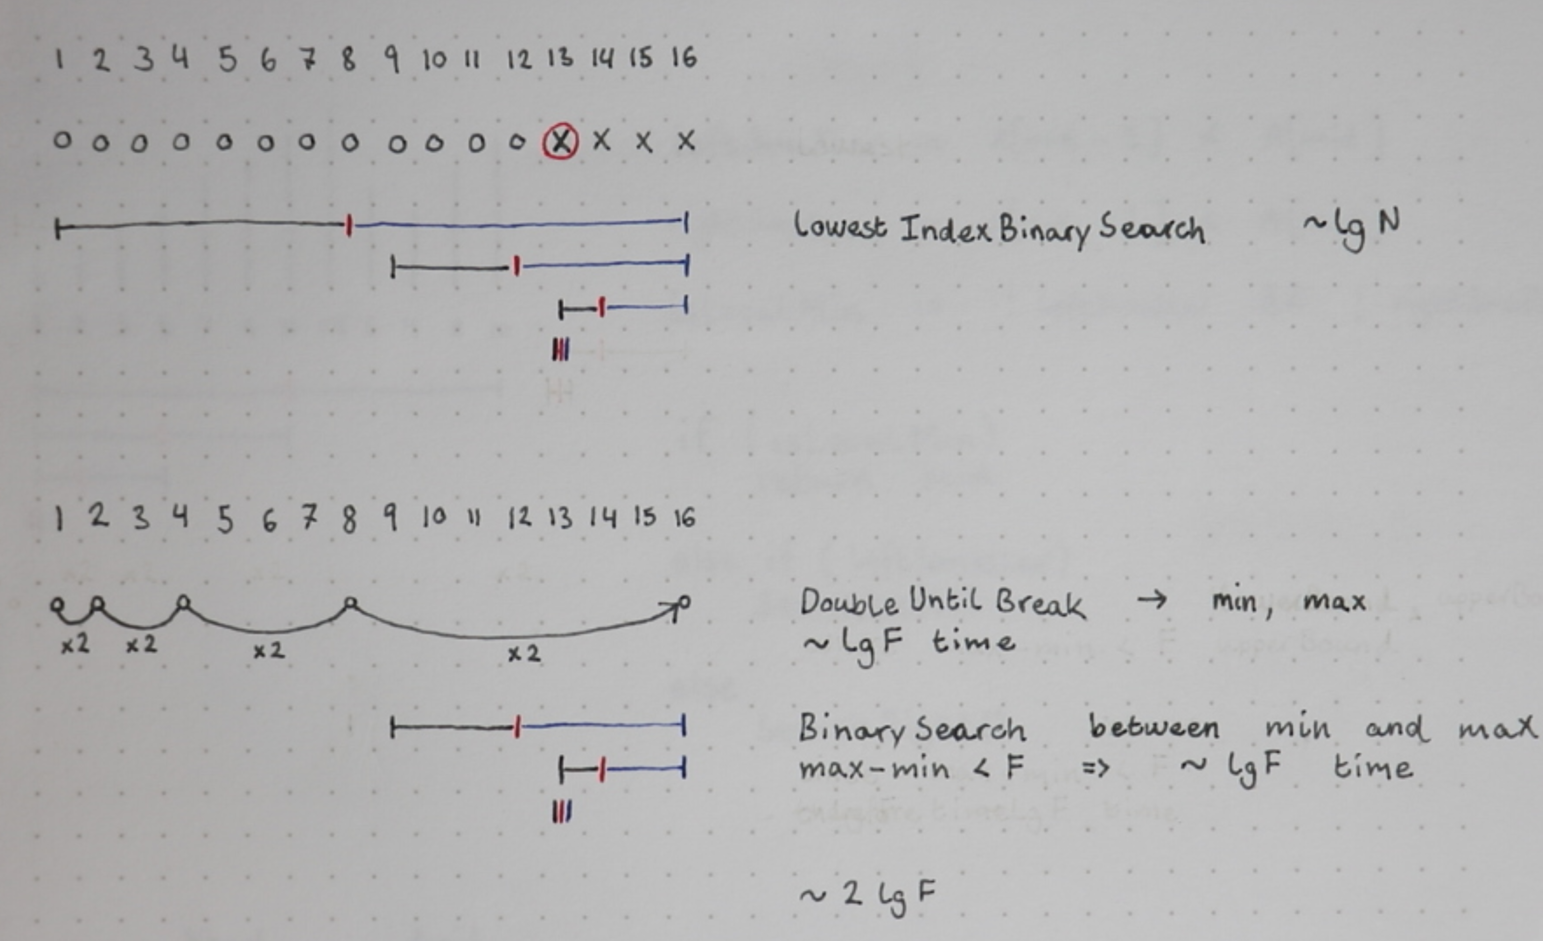 1 2 3 4 5 6 7 8 9 10 11 12 13 14 15 16
o o o o o o o o o o o o x x x x
Lowest Index Binary Search ~lg N
1 2 3 4 5 6 7 8 9 10 11 12 13 14 15 16
Double Until Break → min, max
x2 x2 x2 x2
~ lg F time
Binary Search between min and max
max-min < F => ~ lg F time
~ 2 lg F